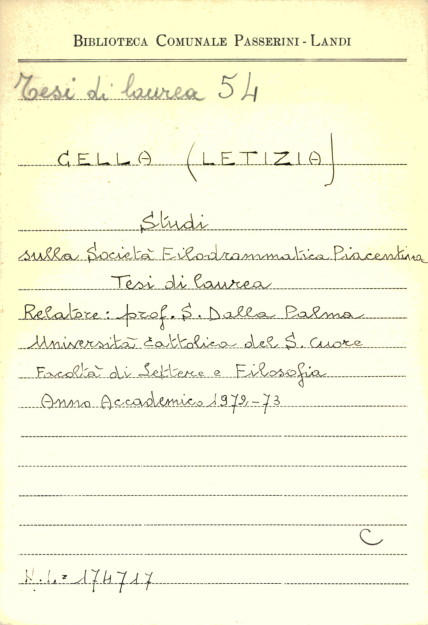 BIBLIOTECA COMUNALE PASSERINI - LANDI
Tesi di laurea 54
GELLA (LETIZIA)
Studi
sulla Società Filodrammatica Piacentina
Tesi di laurea
Relatore: prof. S. Dalla Palma
Università Cattolica del S. Cuore
Facoltà di Lettere e Filosofia
Anno Accademico 1972-73
C
N.I. = 174717